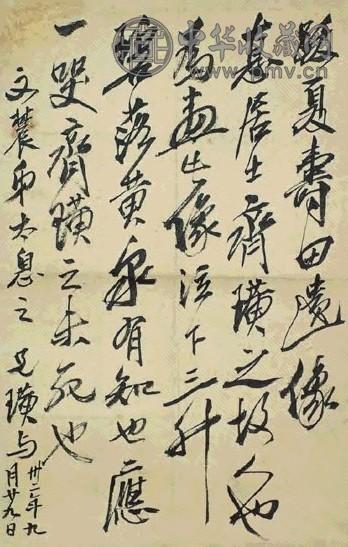 中华收藏网
pmv.cn
題夏壽田遺像
居士齊璜之故人也
為畫此像下三升
碧落黃泉有知也應
一哭齊璜之未死也
文農弟太息之 兄璜与
卅二年九
月廿九日